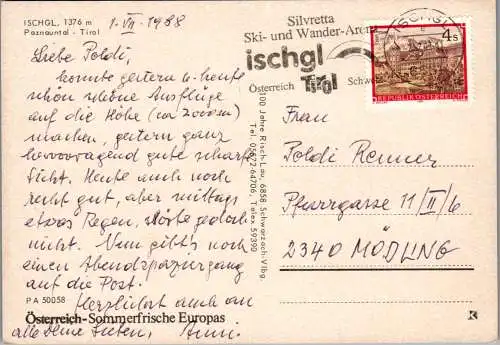 ISCHGL, 1376 m
Paznauntal - Tirol
1-VII-1988
Liebe Poldi,
konnte gestern u. heute
schon schöne Ausflüge
auf die Höhe (ca 2000m)
machen, gestern ganz
hervorragend gute scharfe
Sicht. Heute auch noch
recht gut, aber mittags
etwas Regen, störte jedoch
nicht. Nun gibt's noch
einen Abendspaziergang
auf die Post.
Herzlichst auch an
alle Deine Lieben, Anni.
PA 50058
Österreich-Sommerfrische Europas
100 Jahre Risch-Lau, 6858 Schwarzach-Vlbg.
Tel. 05572-64706, Telex 59390
Silvretta
Ski- und Wander-Arena
ischgl
Tirol
Österreich
ISCHGL
4 S
REPUBLIK ÖSTERREICH
Frau
Poldi Renner
Pfarrgasse 11/II/6
2340 MÖDLING